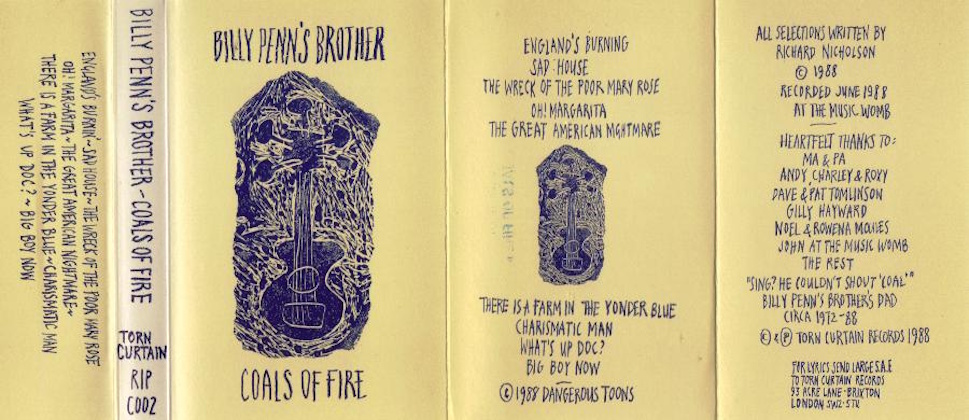 ENGLAND'S BURNIN'~SAD HOUSE~THE WRECK OF THE POOR MARY ROSE
OH! MARGARITA~THE GREAT AMERICAN NIGHTMARE~
THERE IS A FARM IN THE YONDER BLUE~CHARISMATIC MAN
WHAT'S UP DOC?~BIG BOY NOW
BILLY PENN'S BROTHER~COALS OF FIRE
TORN
CURTAIN
RIP
C002
BILLY PENN'S BROTHER
COALS OF FIRE
ENGLAND'S BURNING
SAD HOUSE
THE WRECK OF THE POOR MARY ROSE
OH! MARGARITA
THE GREAT AMERICAN NIGHTMARE
THERE IS A FARM IN THE YONDER BLUE
CHARISMATIC MAN
WHAT'S UP DOC?
BIG BOY NOW
© 1988 DANGEROUS TOONS
ALL SELECTIONS WRITTEN BY
RICHARD NICHOLSON
© 1988
RECORDED JUNE 1988
AT THE MUSIC WOMB
HEARTFELT THANKS TO:
MA & PA
ANDY, CHARLEY & ROXY
DAVE & PAT TOMLINSON
GILLY HAYWARD
NOEL & ROWENA
JOHN AT THE MUSIC WOMB
THE REST
"SING? HE COULDN'T SHOUT 'COAL'"
BILLY PENN'S BROTHER'S DAD
CIRCA 1972-88
© & ℗ TORN CURTAIN RECORDS 1988
FOR LYRICS SEND LARGE S.A.E
TO TORN CURTAIN RECORDS
93 ACRE LANE-BRIXTON
LONDON SW2-5TU